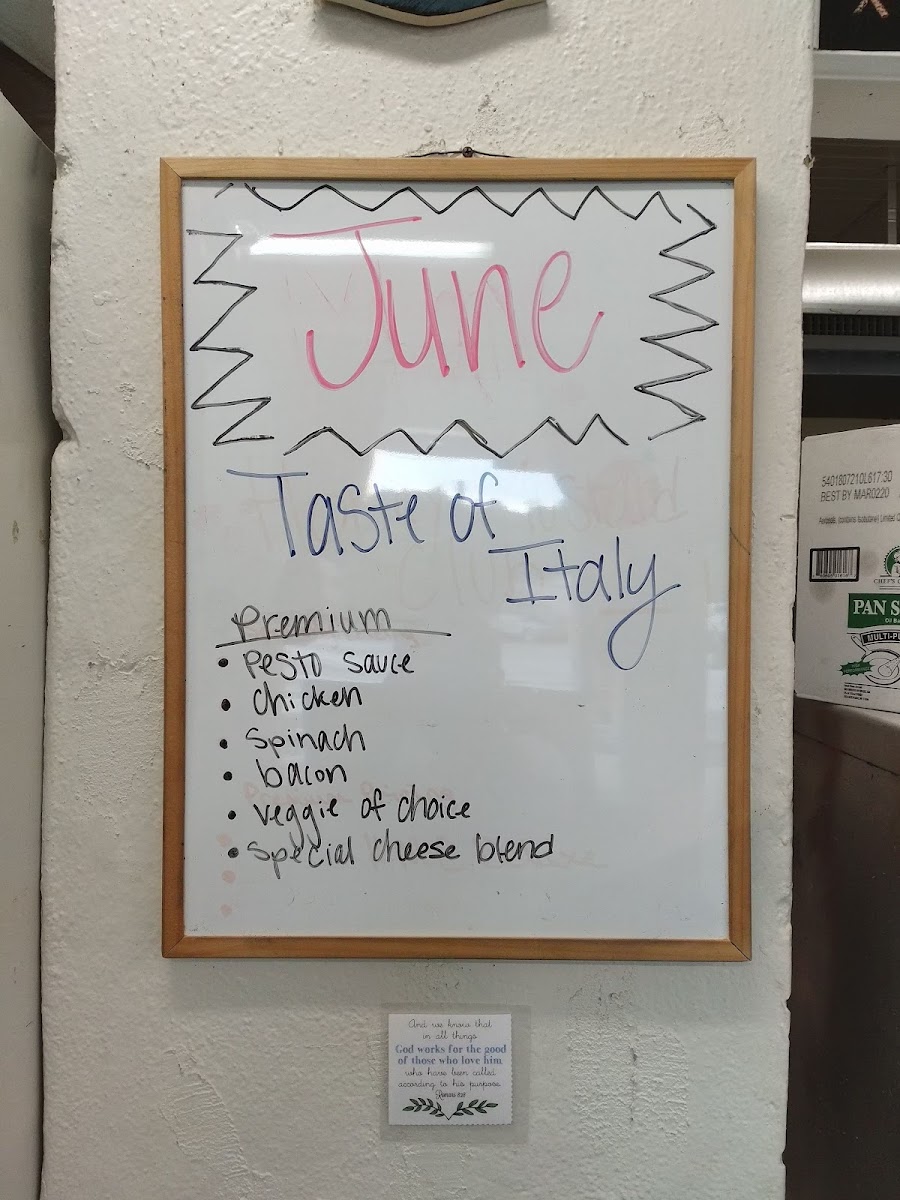 June
Taste of
Italy
Premium
• Pesto sauce
• Chicken
• Spinach
• bacon
• veggie of choice
• Special cheese blend
And we know that
in all things
God works for the good
of those who love him
who have been called
according to his purpose
Romans 8:28
5401807210L617:30
BEST BY MAR0220
CHEF'S
PAN S
MULTI-PU